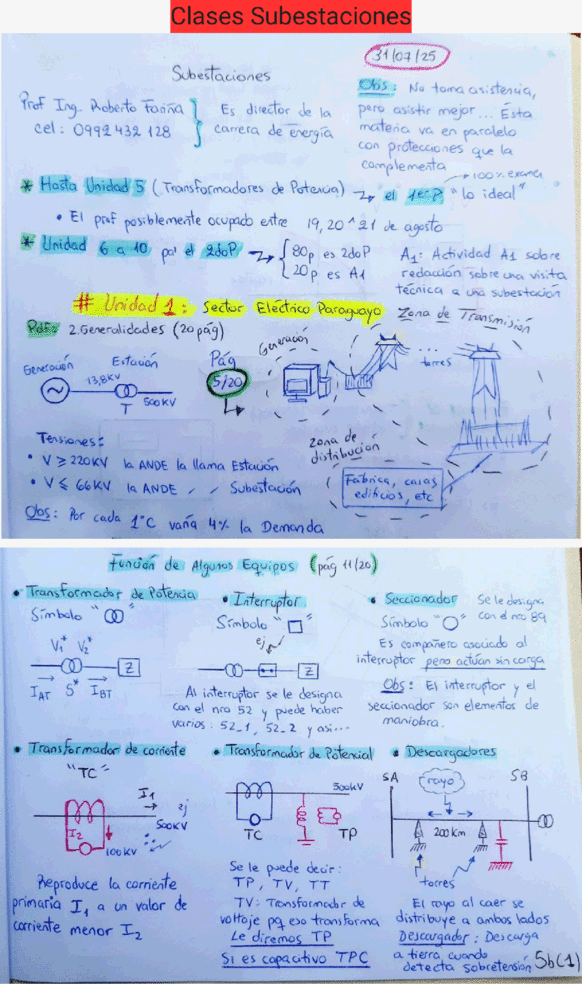 Clases Subestaciones
31/07/25
Subestaciones
Prof Ing. Roberto Fariña
cel: 0992 432 128
Es director de la
carrera de energía
Obs: No toma asistencia,
pero asistir mejor... Esta
materia va en paralelo
con protecciones que la
complementa
* Hasta Unidad 5 (Transformadores de Potencia) → el 1er P "lo ideal"
100% examen
• El prof posiblemente ocupado entre 19, 20 ^ 21 de agosto
* Unidad 6 a 10 pa' el 2do P → { 80p es 2do P
20p es A1
A1: Actividad A1 sobre
redacción sobre una visita
técnica a una subestación
# Unidad 1: Sector Eléctrico Paraguayo
Pdf: 2.Generalidades (20 pág)
Generación
Estación
13,8KV
T
500KV
Pág
5/20
Generación
Zona de Transmisión
torres
zona de
distribución
Fabrica, casas
edificios, etc
Tensiones:
• V ≥ 220KV la ANDE la llama Estación
• V ≤ 66KV la ANDE " " Subestación
Obs: Por cada 1°C varía 4% la Demanda
Función de Algunos Equipos (pág 11/20)
• Transformador de Potencia
Símbolo " "
V1* V2*
Z
I_AT S* I_BT
• Interruptor
Símbolo " "
ej
Z
Al interruptor se le designa
con el nro 52 y puede haber
varios: 52_1, 52_2 y así...
• Seccionador
Se le designa
con el nro 89
Símbolo " "
Es compañero asociado al
interruptor pero actúan sin carga
Obs: El interruptor y el
seccionador son elementos de
maniobra.
• Transformador de corriente
"TC"
I1
ej
500KV
I2
100KV
Reproduce la corriente
primaria I1 a un valor de
corriente menor I2
• Transformador de Potencial
500KV
TC
TP
Se le puede decir:
TP, TV, TT
TV: Transformador de
voltaje pq eso transforma
Le diremos TP
Si es capacitivo TPC
• Descargadores
SA
rayo
SB
200 Km
torres
El rayo al caer se
distribuye a ambos lados
Descargador: Descarga
a tierra cuando
detecta sobretensión
Sb(1)